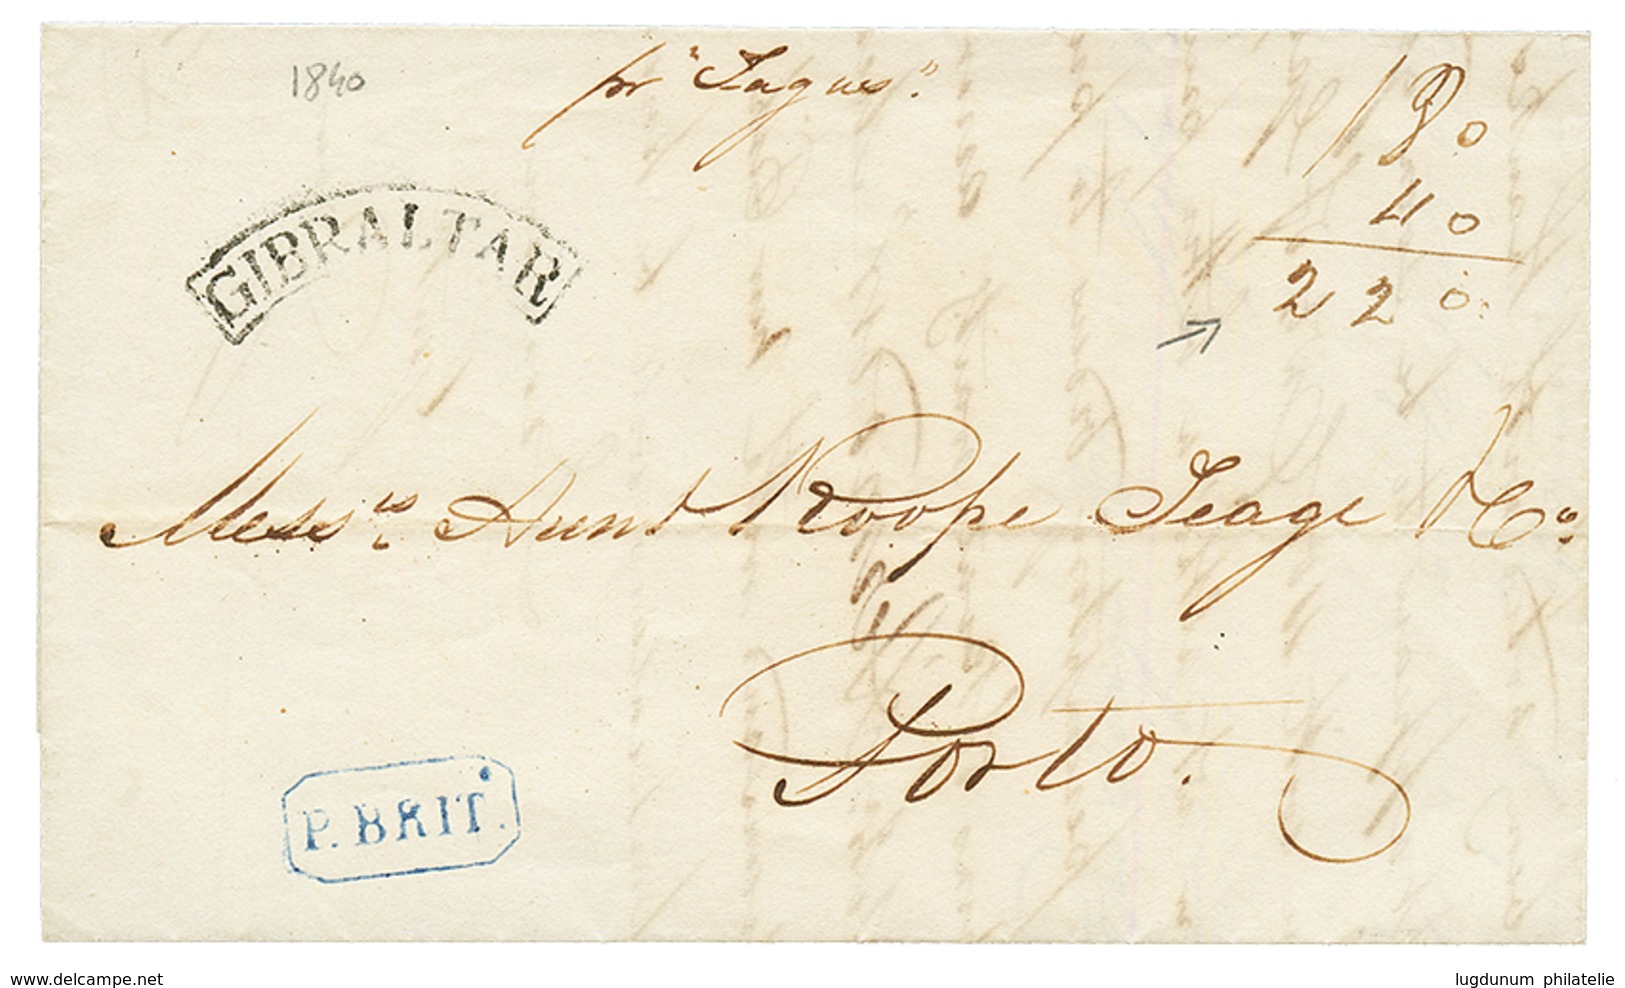 1840
pr "Tagus".
180
40
220
GIBRALTAR
Messrs. Hunt Roope Teage & Co
Porto.
P. BRIT.
www.delcampe.net
lugdunum philatelie